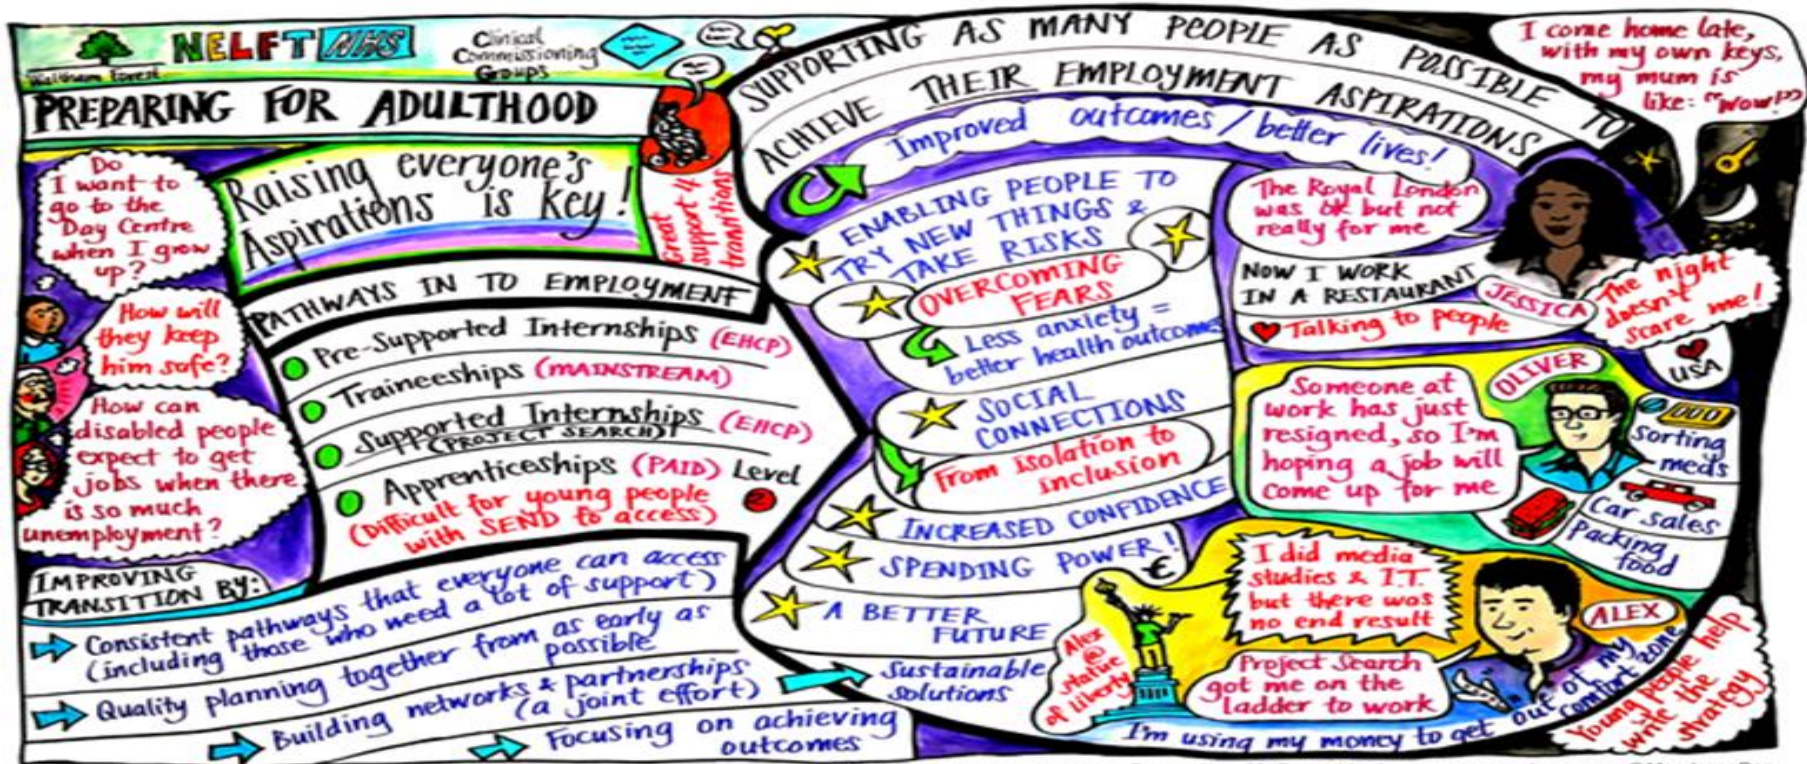 Waltham Forest
NELFT NHS
Clinical
Commissioning
Groups
PREPARING FOR ADULTHOOD
Raising everyone's
Aspirations is key!
Great
support 4
transitions
Do
I want to
go to the
Day Centre
when I grow
up?
How will
they keep
him safe?
How can
disabled people
expect to get
jobs when there
is so much
unemployment?
PATHWAYS IN TO EMPLOYMENT
Pre-Supported Internships (EHCP)
Traineeships (MAINSTREAM)
Supported Internships (EHCP)
(PROJECT SEARCH)
Apprenticeships (PAID) Level
2
(Difficult for young people
with SEND to access)
IMPROVING
TRANSITION BY:
Consistent pathways that everyone can access
(including those who need a lot of support)
Quality planning together from as early as
possible
Building networks & partnerships
(a joint effort)
Focusing on achieving
outcomes
SUPPORTING AS MANY PEOPLE AS POSSIBLE TO
ACHIEVE THEIR EMPLOYMENT ASPIRATIONS
Improved outcomes / better lives!
ENABLING PEOPLE TO
TRY NEW THINGS &
TAKE RISKS
OVERCOMING
FEARS
Less anxiety =
better health outcomes
SOCIAL
CONNECTIONS
From isolation to
inclusion
INCREASED CONFIDENCE
SPENDING POWER!
€
A BETTER
FUTURE
Sustainable
solutions
I come home late,
with my own keys,
my mum is
like: "Wow!"
The Royal London
was ok but not
really for me
NOW I WORK
IN A RESTAURANT
JESSICA
Talking to people
The night
doesn't
scare me!
USA
OLIVER
Someone at
work has just
resigned, so I'm
hoping a job will
come up for me
Sorting
meds
Car sales
Packing
food
I did media
studies & I.T.
but there was
no end result
ALEX
Project Search
got me on the
ladder to work
Alex
@
statue
of liberty
I'm using my money to get out of my
comfort zone
Young people help
write the
strategy